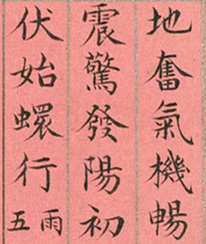 地奮氣機暢
震驚發陽初
伏始蠉行
五雨